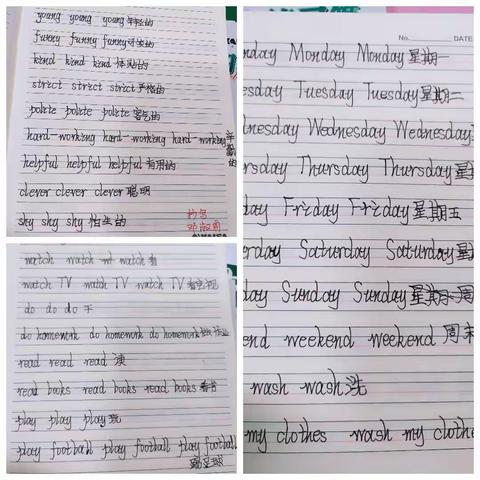 young young young 年轻的
funny funny funny 滑稽的
kind kind kind 体贴的
strict strict strict 严格的
polite polite polite 客气的
hard-working hard-working hard-working 辛勤的
helpful helpful helpful 有用的
clever clever clever 聪明
shy shy shy 怕生的
watch watch watch 看
watch TV watch TV watch TV 看电视
do do do 干
do homework do homework do homework 做作业
read read read 读
read books read books read books 看书
play play play 玩
play football play football play football
踢足球
No. DATE
nday Monday Monday 星期一
esday Tuesday Tuesday 星期二
dnesday Wednesday Wednesday
rsday Thursday Thursday 星
day Friday Friday 星期五
rday Saturday Saturday 星
day Sunday Sunday 星期
end weekend weekend 周末
wash wash 洗
my clothes wash my clothe